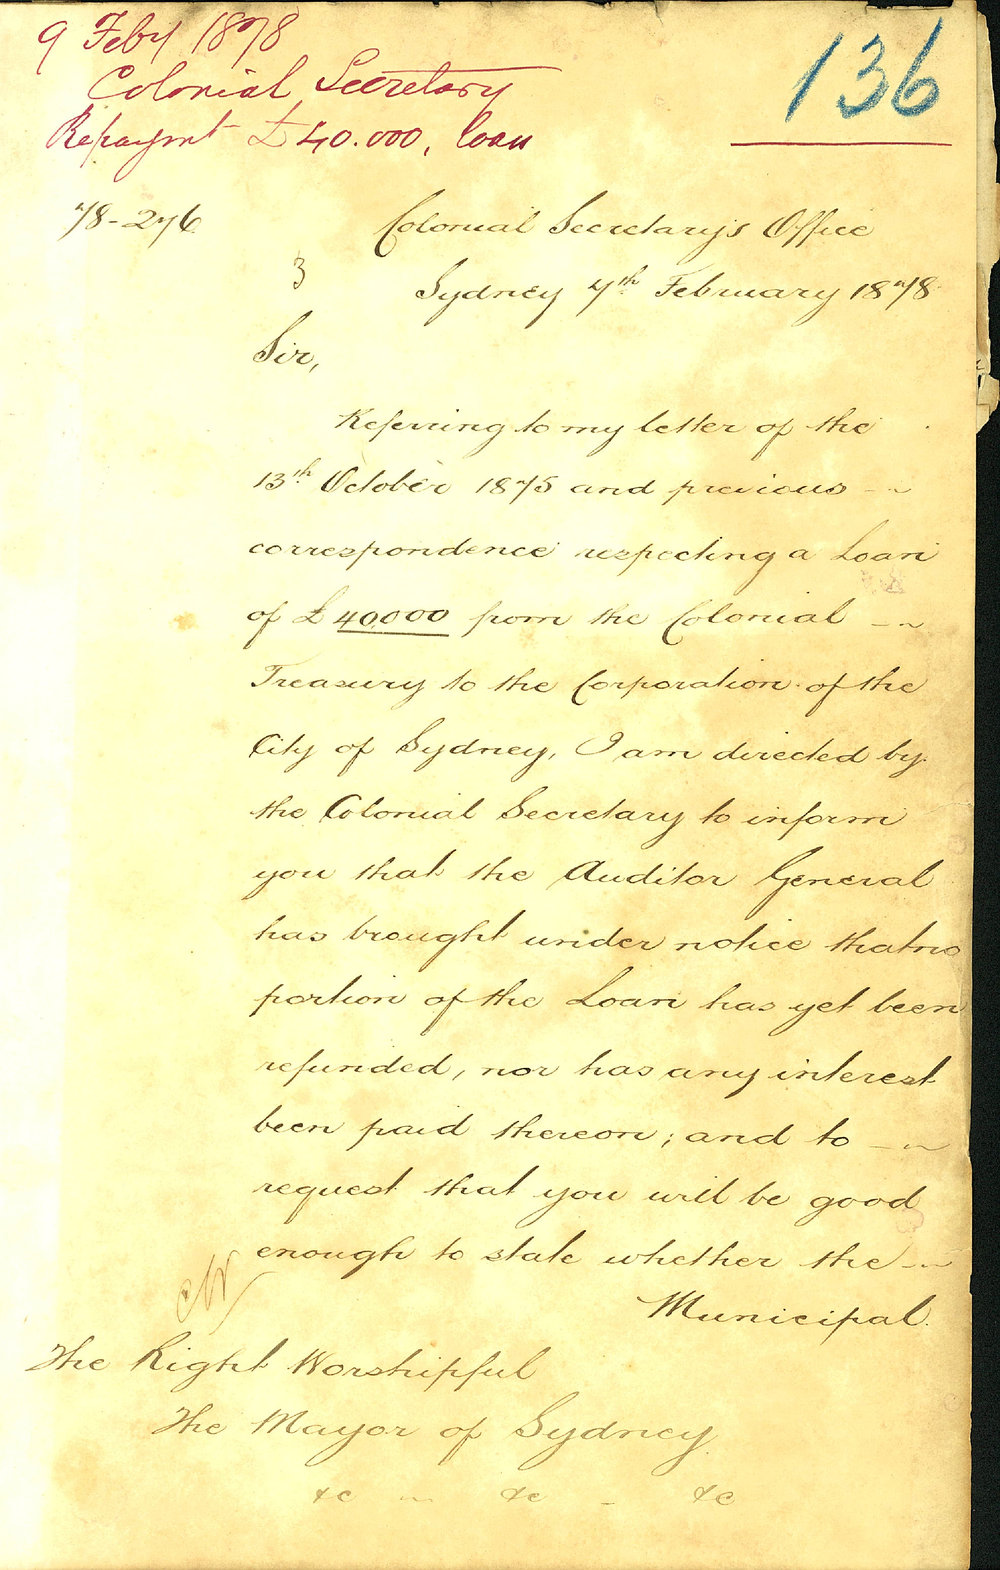 9 Feby 1878
136
Colonial Secretary
Repaymt £40.000, loan
78-276
Colonial Secretary's Office
3
Sydney 7th February 1878
Sir,
Referring to my letter of the
13th October 1875 and previous
correspondence respecting a Loan
of £40,000 from the Colonial
Treasury to the Corporation of the
City of Sydney, I am directed by
the Colonial Secretary to inform
you that the Auditor General
has brought under notice that no
portion of the Loan has yet been
refunded, nor has any interest
been paid thereon; and to
request that you will be good
enough to state whether the
Municipal
The Right Worshipful
The Mayor of Sydney
&c &c &c